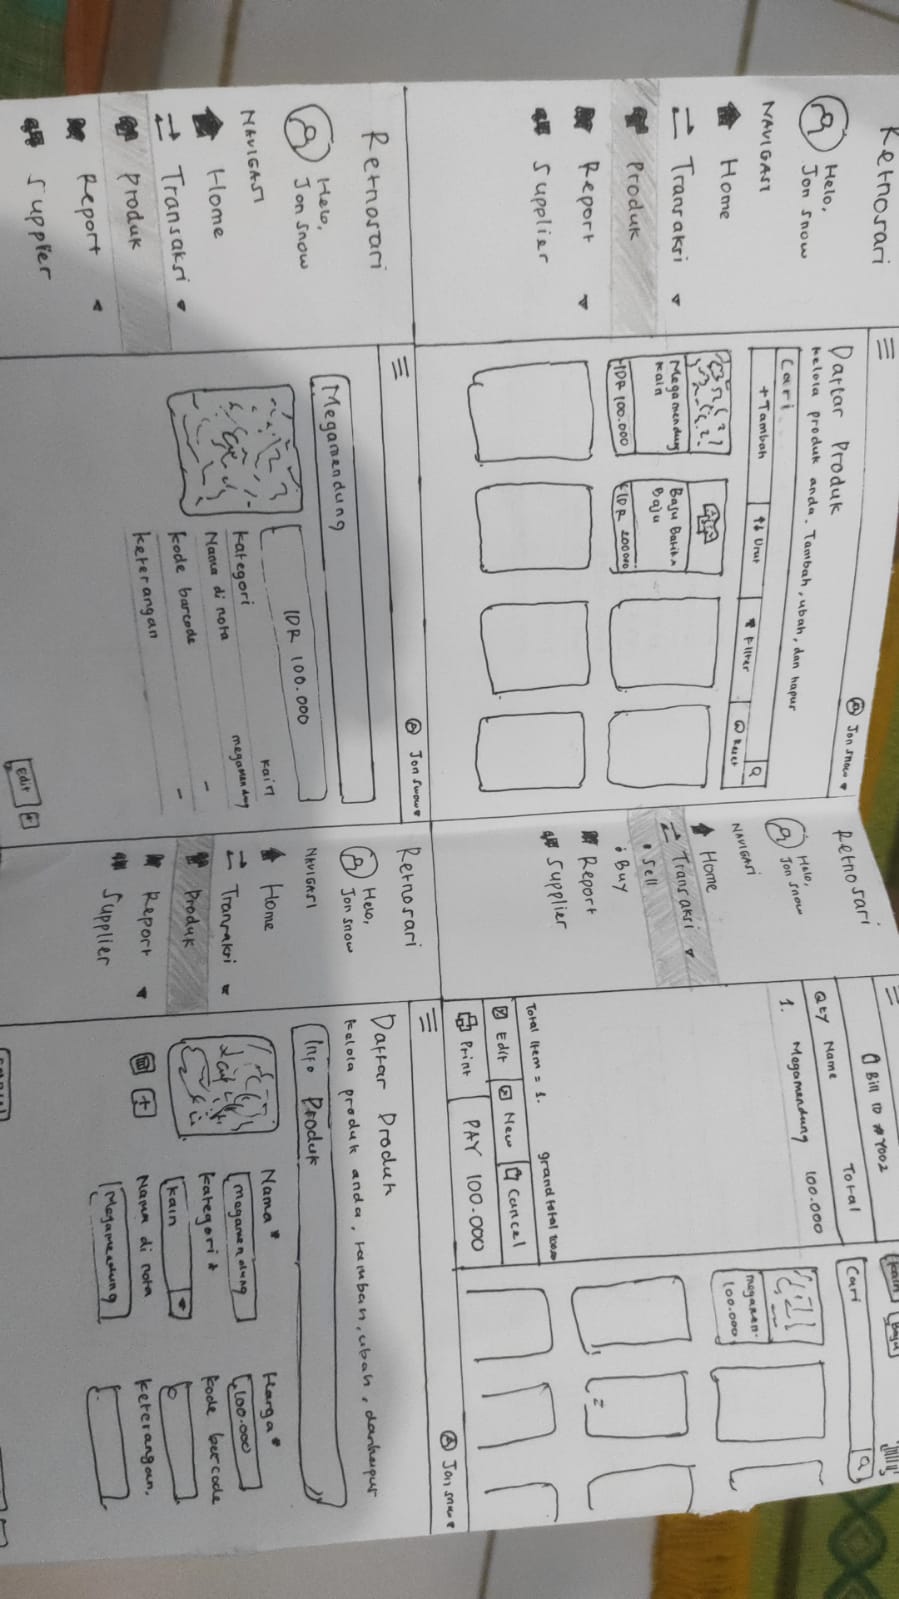 Retnosari
Helo,
Jon snow
NAVIGASI
Home
Transaksi
Produk
Report
Supplier
Jon snow
Daftar Produk
Kelola produk anda. Tambah, ubah, dan hapur
Cari
+ Tambah
Urut
Filter
Reset
Megamendung
Kain
IDR 100.000
Baju Batik
Baju
IDR 200000
Retnosari
Helo,
Jon snow
NAVIGASI
Home
Transaksi
Sell
Buy
Report
Supplier
Bill ID #Y002
Qty Name Total
1. Megamendung 100.000
Total Item = 1. grand total
Edit
New
Cancel
Print
PAY 100.000
Kain
Baju
Cari
100.000
Retnosari
Helo,
Jon snow
NAVIGASI
Home
Transaksi
Produk
Report
Supplier
Jon snow
Megamendung
IDR 100.000
Kategori kain
Nama di nota megamendung
Kode barcode -
Keterangan -
Edit
Retnosari
Helo,
Jon snow
NAVIGASI
Home
Tranraksi
Produk
Report
Supplier
Jon snow
Daftar Produk
Kelola produk anda, tambah, ubah, dan hapur
Info Produk
Nama *
Megamendung
Kategori *
Kain
Nama di nota
Megamendung
Harga *
100.000
Kode bercode
Keterangan.